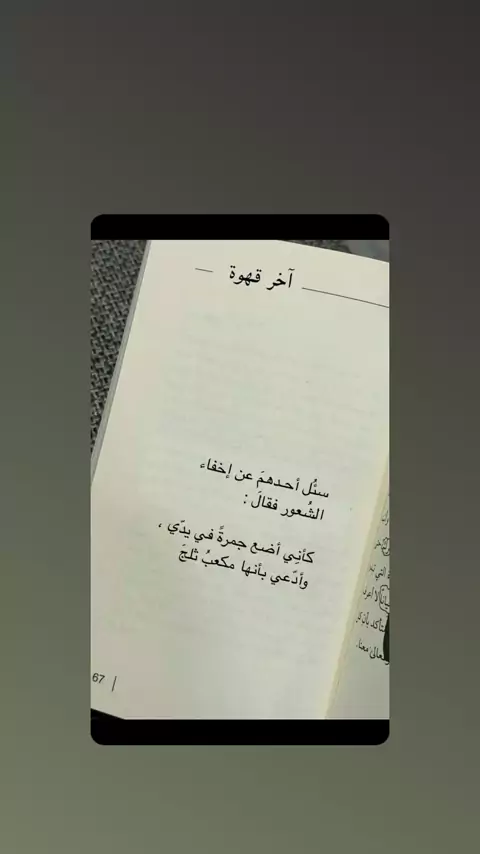 آخر قهوة
سئُل أحدهمَ عن إخفاء
الشُعور فقالَ :
كأنِي أضع جمرةً في يدّي ،
وأدّعي بأنها مكعبُ ثلجَ
67